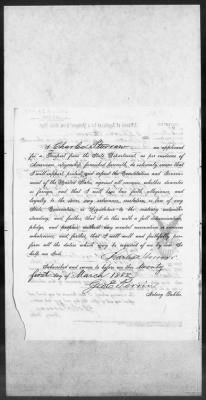 I Charles Morrow, an applicant
for a Passport from the State Department, as per evidence of
American citizenship furnished herewith, do solemnly swear that
I will support, protect, and defend the Constitution and Govern-
ment of the United States, against all enemies, whether domestic
or foreign, and that I will bear true faith, allegiance, and
loyalty to the same, any ordinance, resolution, or law of any
State, Convention, or Legislature to the contrary notwith-
standing, and further, that I do this with a full determination,
pledge, and purpose, without any mental reservation or evasion
whatsoever, and further, that I will well and faithfully per-
form all the duties which may be required of me by law. So
help me God.
Subscribed and sworn to before me this Twenty
first day of March 188
Notary Public.